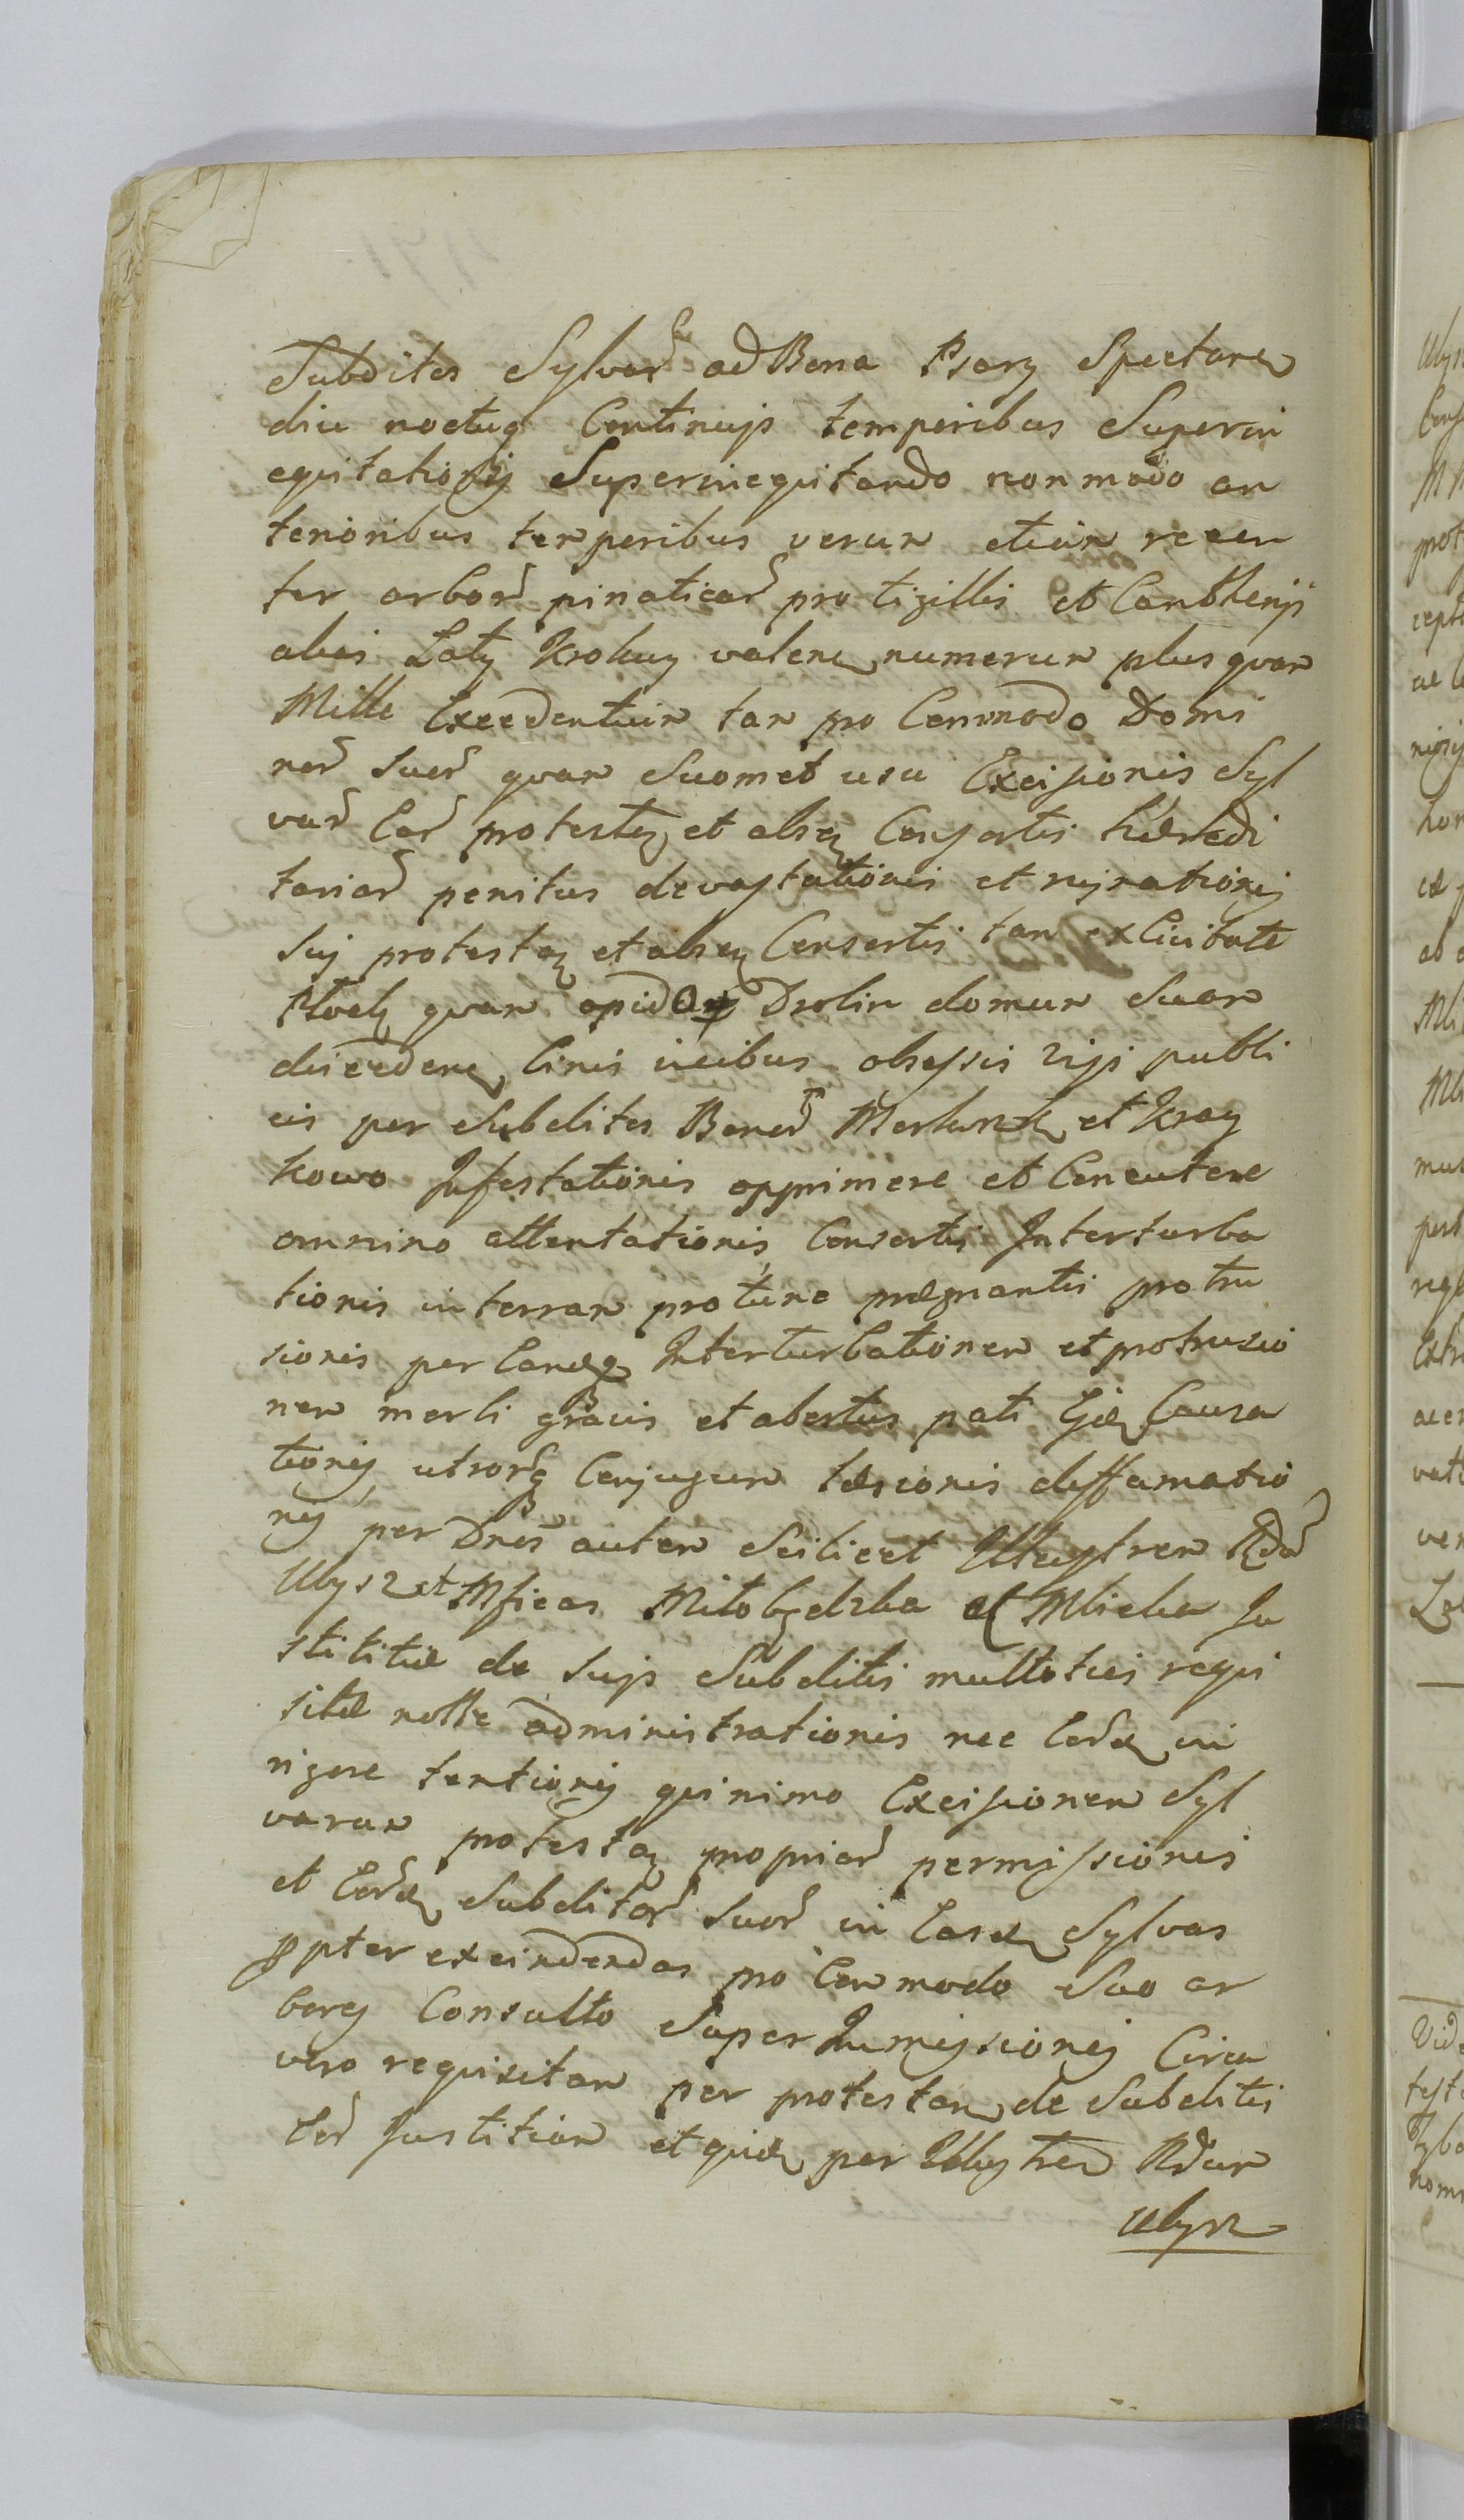 Subditos Sylvar ad Bona Psary Spectaren
diu noctuq Continujs temporibus Superin
equitationij Superinequitando non modo an
terioribus temporibus verum etiam recen
ter arbor pinaticar pro tigillis et Cantherijs
alias Łaty Krokwy valen numerum plusquam
Mille Excedentium tam pro Commodo Domi
nor suor quam Suomet usu Excisionis Syl
var Ear protestan et absq Consortis hæredi
tariar penitus devastationis et rujnationis
Suj protestan et absen Consortis tam ex Civitate
Plock quam opido Drobin domum Suam
discedenq binis vicibus obsessis vijs publi
cis per Subditos Bonor et Kray
kowo Infestationis opprimere et Concutere
omnino attentationis Consortis Interturba
tionis in terram protunc prægnantis protru
sionis per Eandq Interturbationem et protrusio
nem morbi gravis et abortus pati Ejd Causa
tionis utrorq Conjugum læsionis diffamatio
nis per Dnos autem Scilicet Illustrem Rdu
Ulysz et Mficos Miłobędzka et Mlicka Ju
stitiæ de sujs Subditis multoties requi
sitæ nolle administrationis nec Eord in
rigore tentionis quinimo Excisionem Syl
varum protestan propriar permissionis
et Eord Subditor Suor in Easd Sylvas
ppter exeindendas pro Commodo Suo ar
bores Consulto Super Inmissionis Circa
vero requisitam per protestan de Subditis
Eor Justitiam et quid per Illustrem Rdum
Ulysz